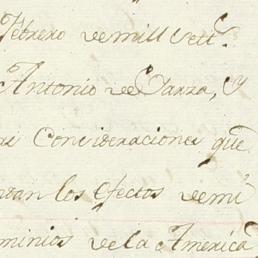 Febrero de mill Sett.ˢ
Antonio de Oarza, y
as Concideraciones que
van los efectos de mi
minios de la America